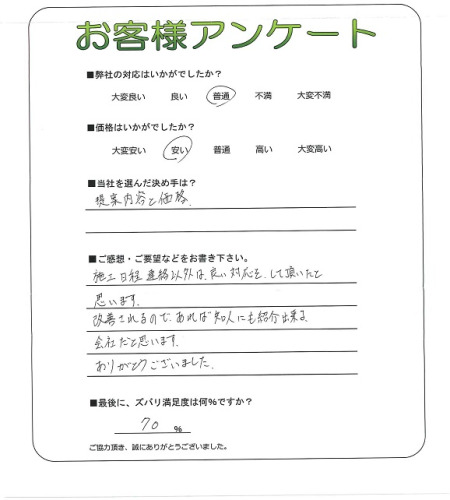 お客様アンケート
■弊社の対応はいかがでしたか？
大変良い 良い 普通 不満 大変不満
■価格はいかがでしたか？
大変安い 安い 普通 高い 大変高い
■当社を選んだ決め手は？
提案内容と価格.
■ご感想・ご要望などをお書き下さい。
施工日程連絡以外は、良い対応を、して頂いたと
思います.
改善されるので、あれば知人にも紹介出来る
会社だと思います.
ありがとうございました.
■最後に、ズバリ満足度は何％ですか？
70 %
ご協力頂き、誠にありがとうございました。